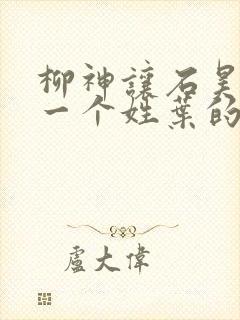 柳神讓石昊
一个姓葉的
盧大偉